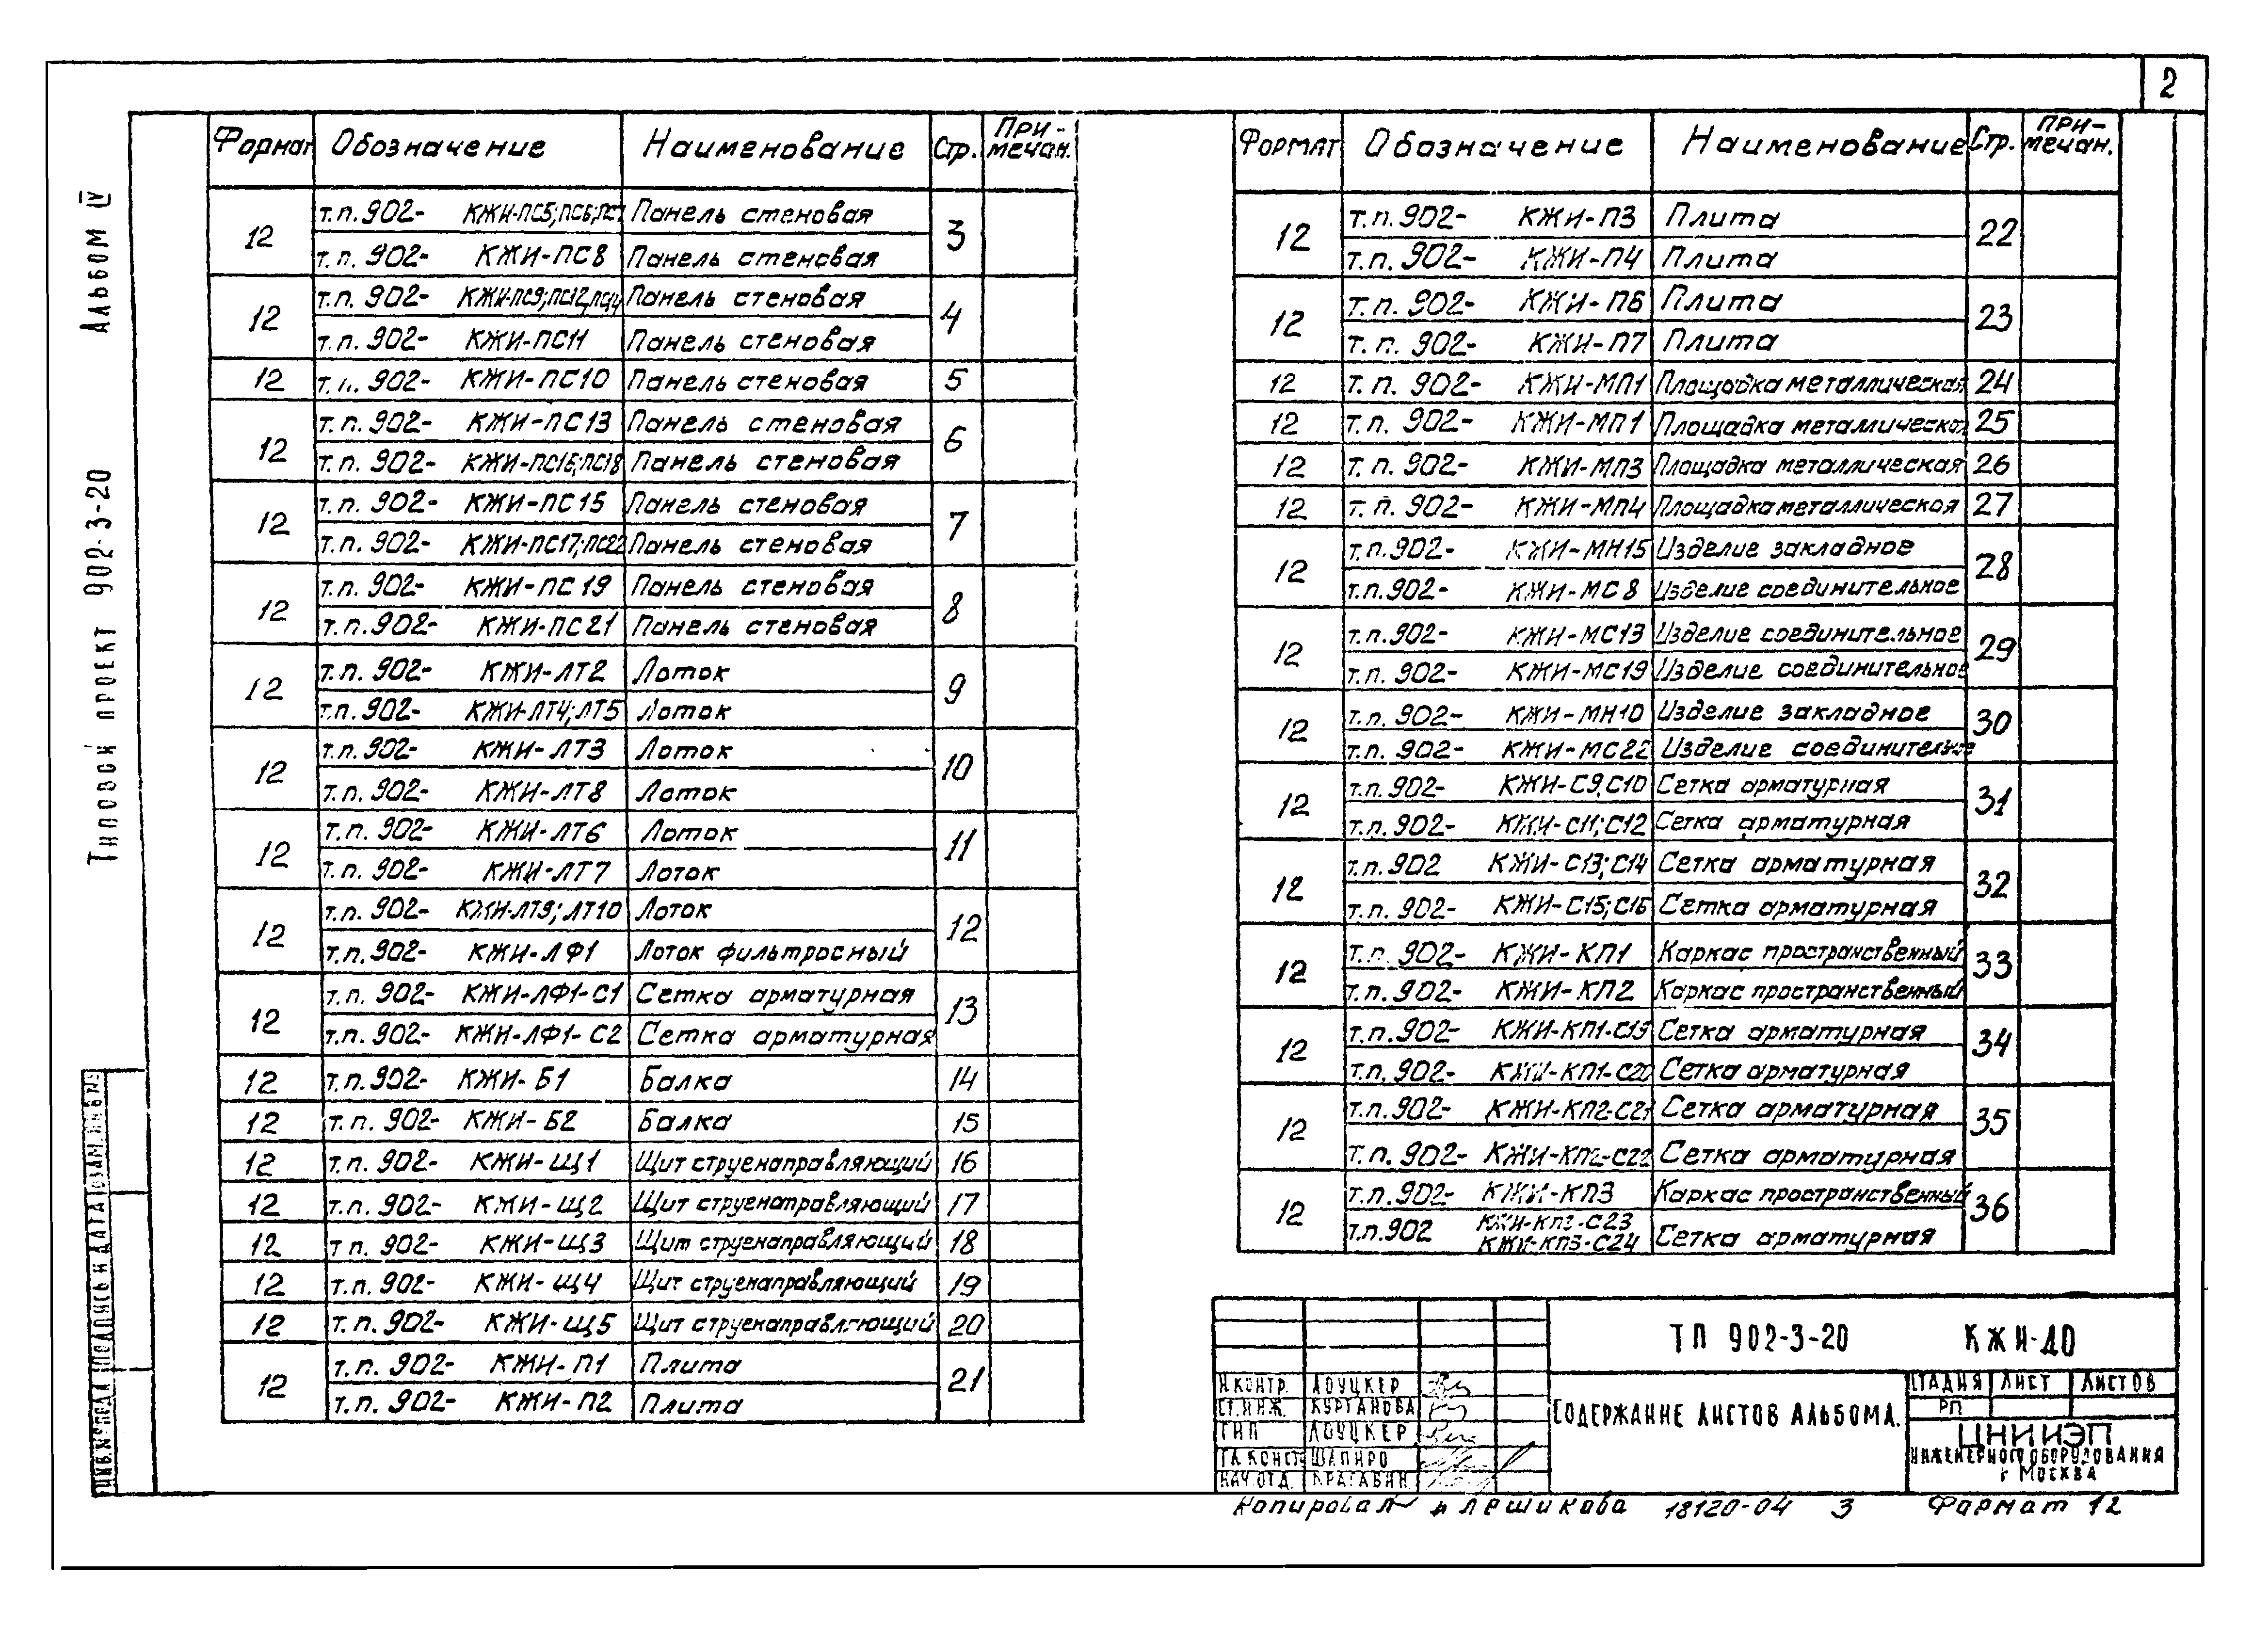 2
Альбом IV
Типовой проект 902-3-20
Формат Обозначение Наименование Стр. При-мечан.
12 т.п. 902- КЖИ-ПС5;ПС6;ПС7 Панель стеновая 3
т.п. 902- КЖИ-ПС8 Панель стеновая
12 т.п. 902- КЖИ-ПС9;ПС12,ПС14 Панель стеновая 4
т.п. 902- КЖИ-ПС11 Панель стеновая
12 т.п. 902- КЖИ-ПС10 Панель стеновая 5
12 т.п. 902- КЖИ-ПС13 Панель стеновая 6
т.п. 902- КЖИ-ПС16;ПС18 Панель стеновая
12 т.п. 902- КЖИ-ПС15 Панель стеновая 7
т.п. 902- КЖИ-ПС17;ПС22 Панель стеновая
12 т.п. 902- КЖИ-ПС19 Панель стеновая 8
т.п. 902- КЖИ-ПС21 Панель стеновая
12 т.п. 902- КЖИ-ЛТ2 Лоток 9
т.п. 902- КЖИ-ЛТ4;ЛТ5 Лоток
12 т.п. 902- КЖИ-ЛТ3 Лоток 10
т.п. 902- КЖИ-ЛТ8 Лоток
12 т.п. 902- КЖИ-ЛТ6 Лоток 11
т.п. 902- КЖИ-ЛТ7 Лоток
12 т.п. 902- КЖИ-ЛТ9;ЛТ10 Лоток 12
т.п. 902- КЖИ-ЛФ1 Лоток фильтросный
12 т.п. 902- КЖИ-ЛФ1-С1 Сетка арматурная 13
т.п. 902- КЖИ-ЛФ1-С2 Сетка арматурная
12 т.п. 902- КЖИ-Б1 Балка 14
12 т.п. 902- КЖИ-Б2 Балка 15
12 т.п. 902- КЖИ-Щ1 Щит струенаправляющий 16
12 т.п. 902- КЖИ-Щ2 Щит струенаправляющий 17
12 т п. 902- КЖИ-Щ3 Щит струенаправляющий 18
12 т.п. 902- КЖИ-Щ4 Щит струенаправляющий 19
12 т.п. 902- КЖИ-Щ5 Щит струенаправляющий 20
12 т.п. 902- КЖИ-П1 Плита 21
т.п. 902- КЖИ-П2 Плита
Формат Обозначение Наименование Стр. При-мечан.
12 т.п. 902- КЖИ-П3 Плита 22
т.п. 902- КЖИ-П4 Плита
12 т.п. 902- КЖИ-П6 Плита 23
т.п. 902- КЖИ-П7 Плита
12 т.п. 902- КЖИ-МП1 Площадка металлическая 24
12 т.п. 902- КЖИ-МП1 Площадка металлическая 25
12 т.п. 902- КЖИ-МП3 Площадка металлическая 26
12 т.п. 902- КЖИ-МП4 Площадка металлическая 27
12 т.п. 902- КЖИ-МН15 Изделие закладное 28
т.п. 902- КЖИ-МС8 Изделие соединительное
12 т.п. 902- КЖИ-МС13 Изделие соединительное 29
т.п. 902- КЖИ-МС19 Изделие соединительное
12 т.п. 902- КЖИ-МН10 Изделие закладное 30
т.п. 902- КЖИ-МС22 Изделие соединительное
12 т.п. 902- КЖИ-С9,С10 Сетка арматурная 31
т.п. 902- КЖИ-С11;С12 Сетка арматурная
12 т.п. 902 КЖИ-С13;С14 Сетка арматурная 32
т.п. 902- КЖИ-С15;С16 Сетка арматурная
12 т.п. 902- КЖИ-КП1 Каркас пространственный 33
т.п. 902- КЖИ-КП2 Каркас пространственный
12 т.п. 902- КЖИ-КП1-С19 Сетка арматурная 34
т.п. 902- КЖИ-КП1-С20 Сетка арматурная
12 т.п. 902- КЖИ-КП2-С21 Сетка арматурная 35
т.п. 902- КЖИ-КП2-С22 Сетка арматурная
12 т.п. 902- КЖИ-КП3 Каркас пространственный 36
КЖИ-КП3-С23
т.п. 902 КЖИ-КП3-С24 Сетка арматурная
ТП 902-3-20 КЖИ-ДО
Н.КОНТР. ЛОУЦКЕР
СТ.ИНЖ. КУРГАНОВА
ГИП ЛОУЦКЕР
ГЛ.КОНСТ. ШАПИРО
НАЧ.ОТД.
СОДЕРЖАНИЕ ЛИСТОВ АЛЬБОМА.
СТАДИЯ ЛИСТ ЛИСТОВ
РП
ЦНИИЭП
ИНЖЕНЕРНОГО ОБОРУДОВАНИЯ
г МОСКВА
ИНВ.№ ПОДЛ. ПОДПИСЬ И ДАТА ВЗАМ.ИНВ.№
Копировал Алешикова 18120-04 3 Формат 12